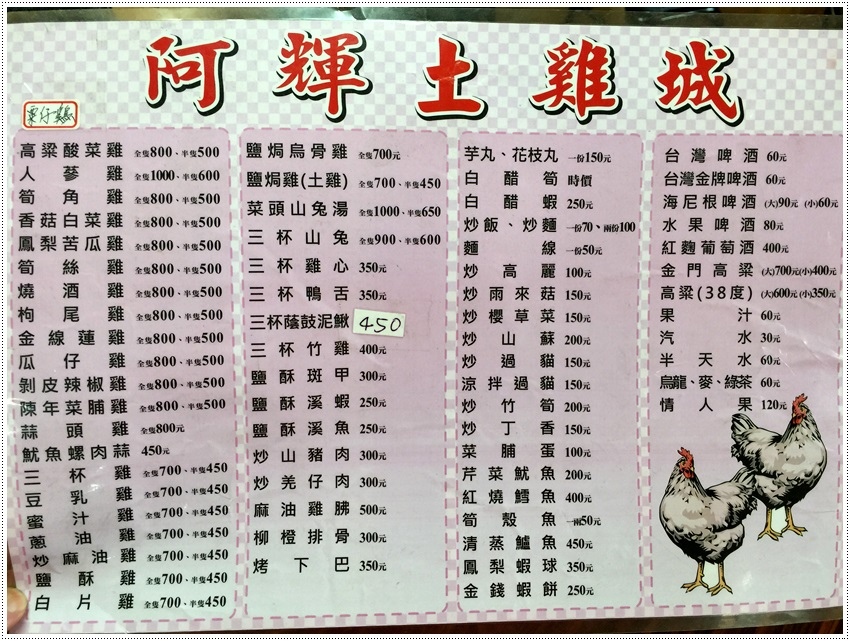 阿輝土雞城
栗仔雞
高粱酸菜雞 全隻800、半隻500
人蔘雞 全隻1000、半隻600
筍角雞 全隻800、半隻500
香菇白菜雞 全隻800、半隻500
鳳梨苦瓜雞 全隻800、半隻500
筍絲雞 全隻800、半隻500
燒酒雞 全隻800、半隻500
枸尾雞 全隻800、半隻500
金線蓮雞 全隻800、半隻500
瓜仔雞 全隻800、半隻500
剝皮辣椒雞 全隻800、半隻500
陳年菜脯雞 全隻800、半隻500
蒜頭雞 全隻800元
魷魚螺肉蒜 450元
三杯雞 全隻700、半隻450
豆乳雞 全隻700、半隻450
蜜汁雞 全隻700、半隻450
蔥油雞 全隻700、半隻450
炒麻油雞 全隻700、半隻450
鹽酥雞 全隻700、半隻450
白片雞 全隻700、半隻450
鹽焗烏骨雞 全隻700元
鹽焗雞(土雞) 全隻700、半隻450
菜頭山兔湯 全隻1000、半隻650
三杯山兔 全隻900、半隻600
三杯雞心 350元
三杯鴨舌 350元
三杯蔭鼓泥鰍 450
三杯竹雞 400元
鹽酥斑甲 300元
鹽酥溪蝦 250元
鹽酥溪魚 250元
炒山豬肉 300元
炒羌仔肉 300元
麻油雞胇 500元
柳橙排骨 300元
烤下巴 350元
芋丸、花枝丸 一份150元
白醋筍 時價
白醋蝦 250元
炒飯、炒麵 一份70、兩份100
麵線 一份50元
炒高麗 100元
炒雨來菇 150元
炒櫻草菜 150元
炒山蘇 200元
炒過貓 150元
涼拌過貓 150元
炒竹筍 200元
炒丁香 150元
菜脯蛋 100元
芹菜魷魚 200元
紅燒鱈魚 400元
筍殼魚 一兩50元
清蒸鱸魚 450元
鳳梨蝦球 350元
金錢蝦餅 250元
台灣啤酒 60元
台灣金牌啤酒 60元
海尼根啤酒 (大)90元 (小)60元
水果啤酒 80元
紅麴葡萄酒 400元
金門高粱 (大)700元(小)400元
高粱(38度) (大)600元(小)350元
果汁 60元
汽水 30元
半天水 60元
烏龍、麥、綠茶 60元
情人果 120元